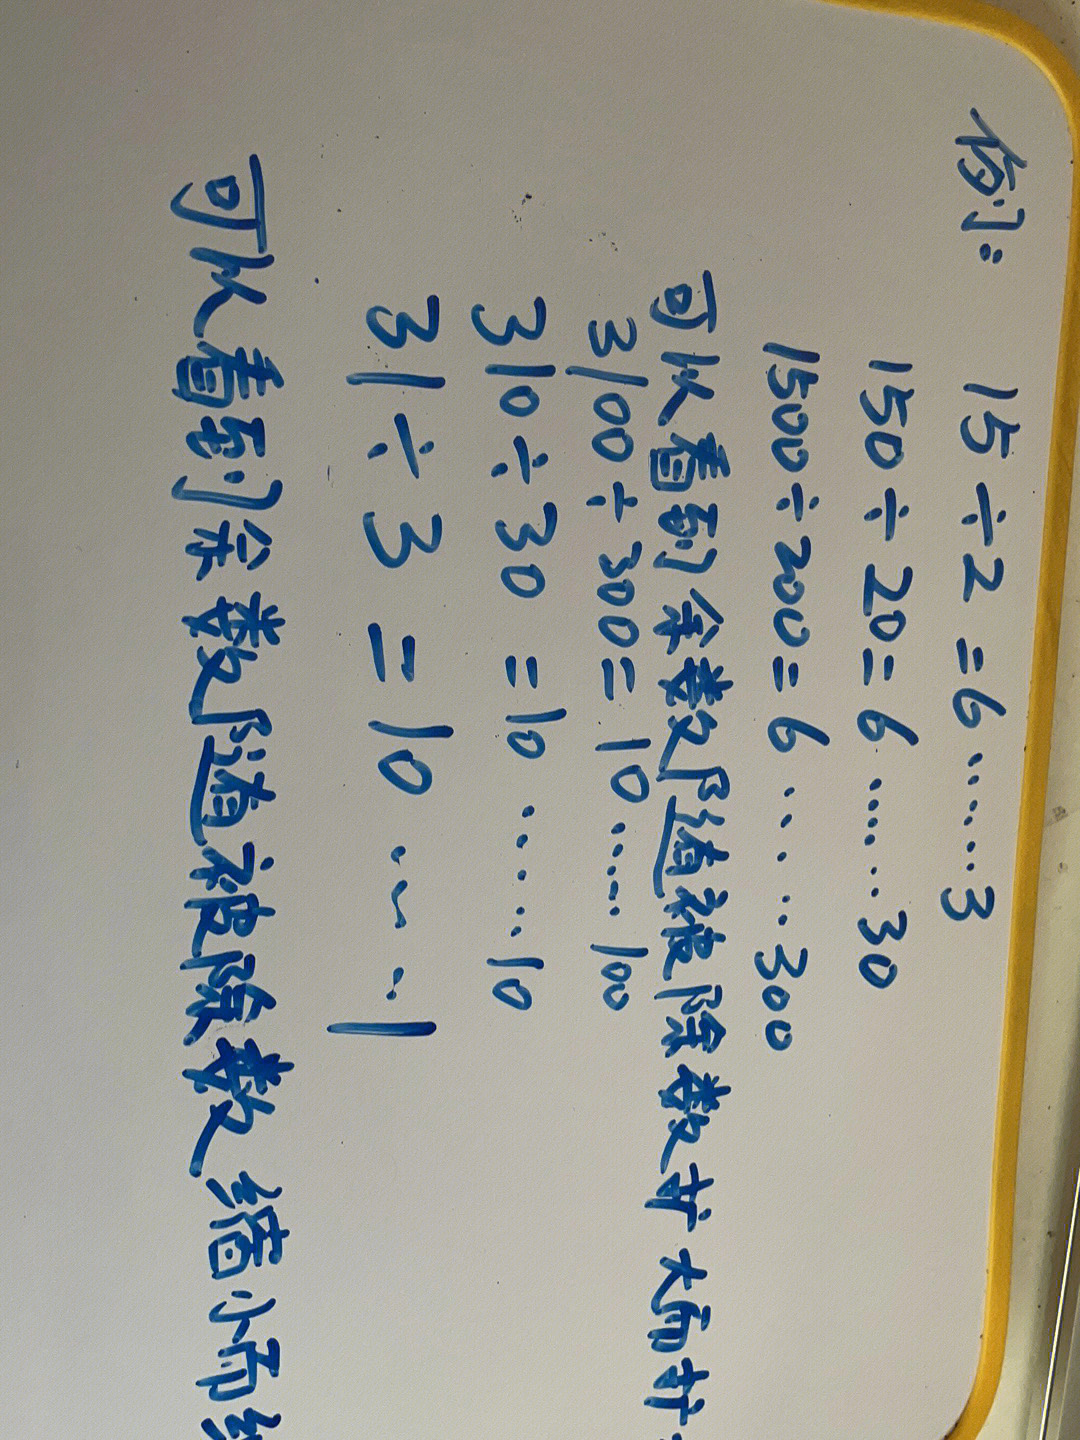 例：
15÷2=6……3
150÷20=6……30
1500÷200=6……300
可以看到余数随着被除数扩大而扩
3100÷300=10……100
310÷30=10……10
31÷3=10……1
可以看到余数随着被除数缩小而